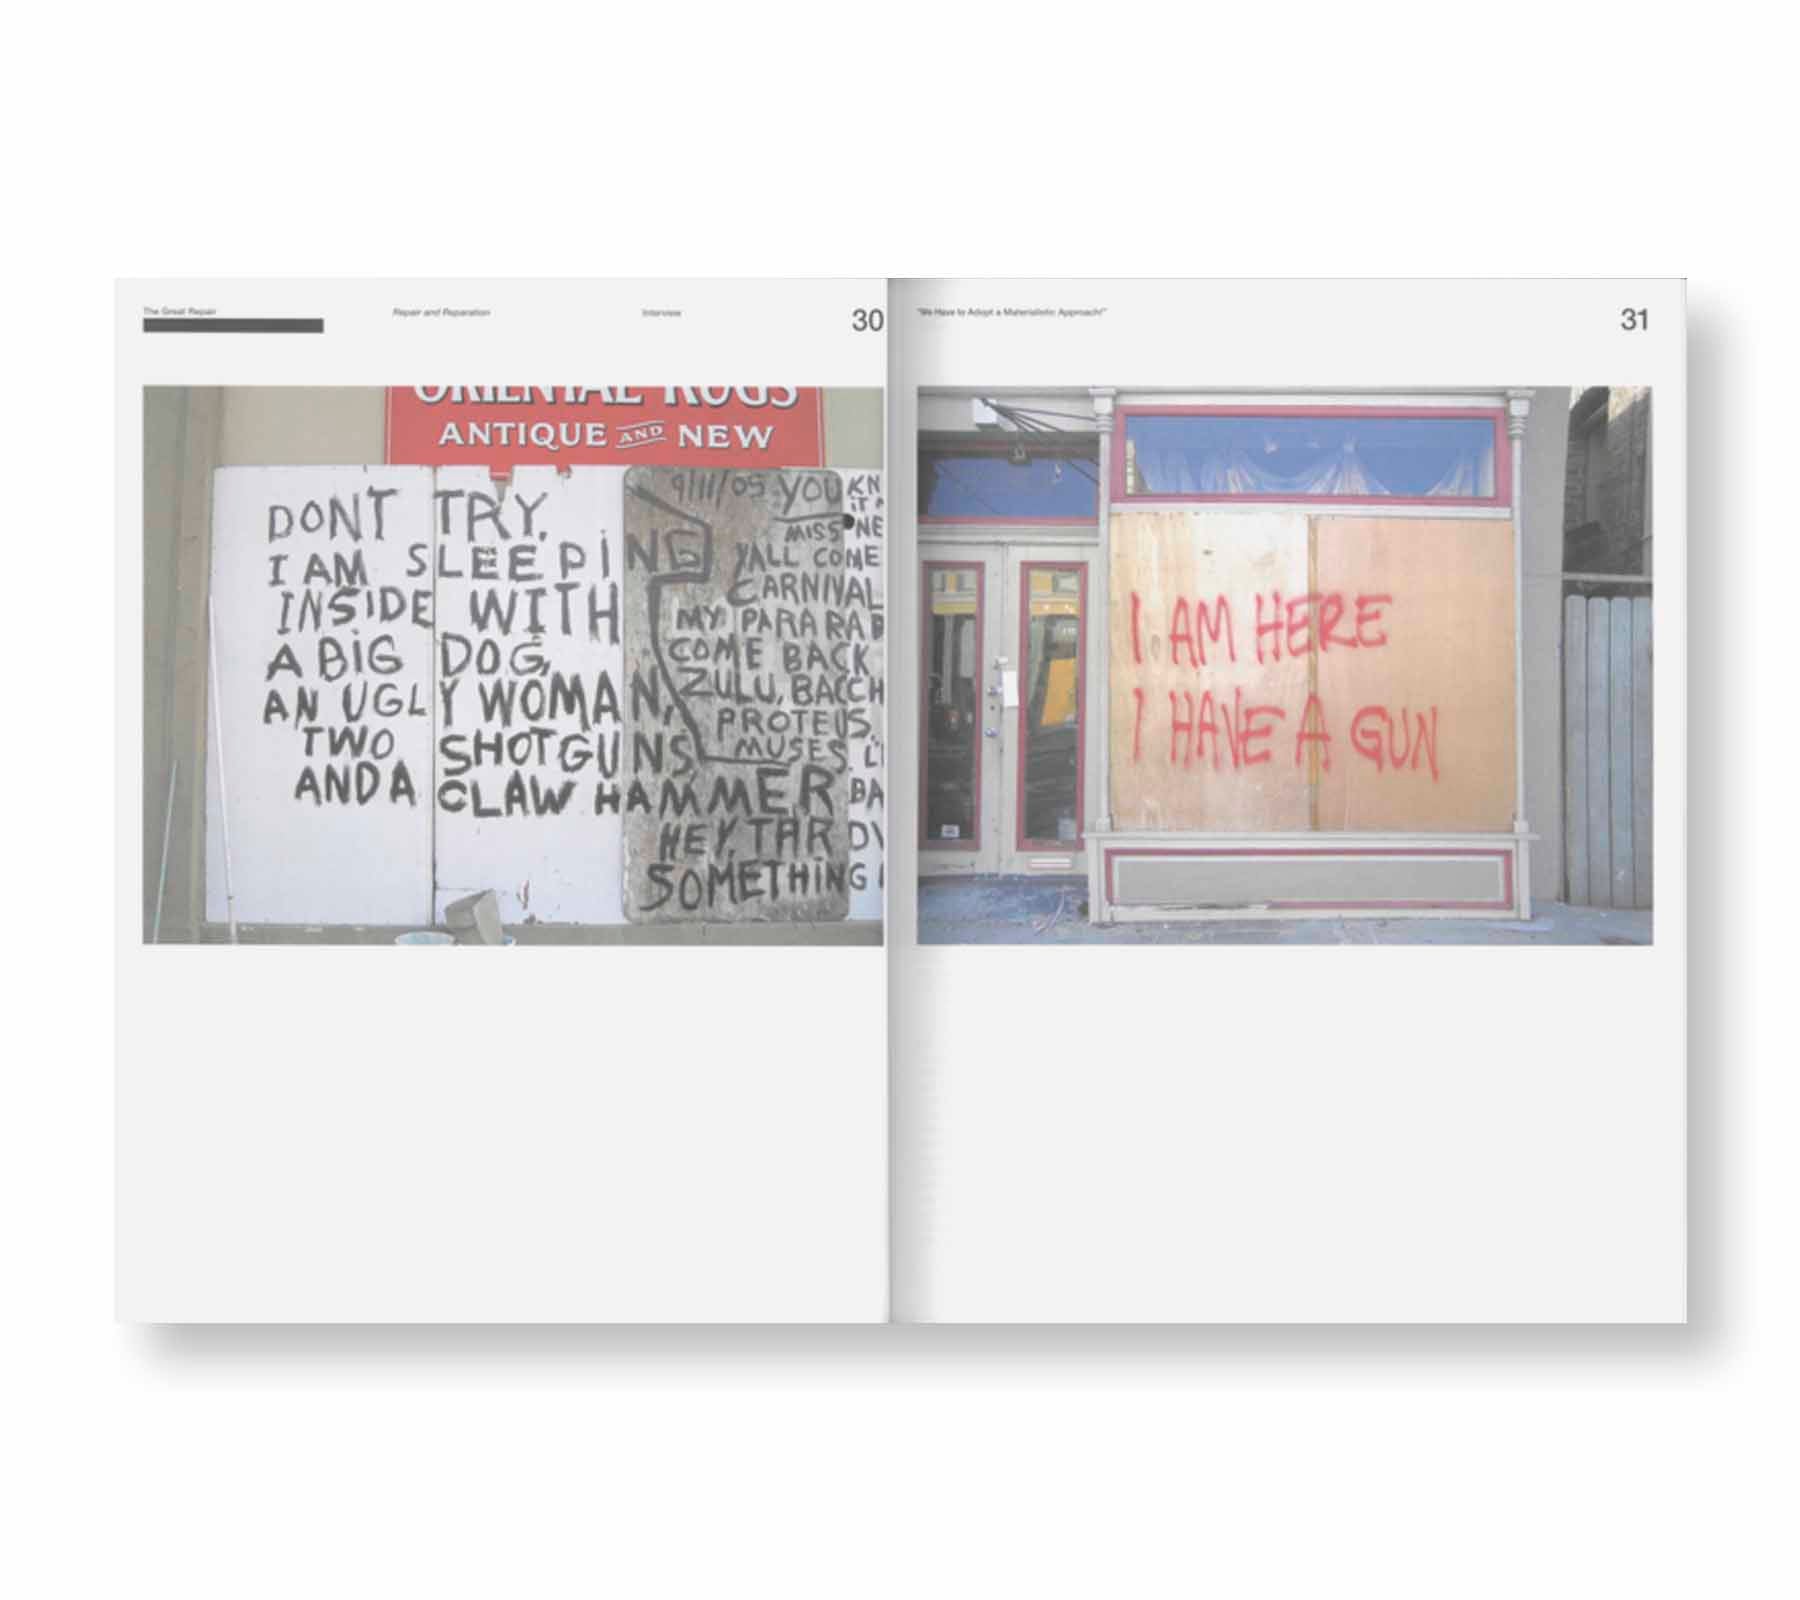 The Great Repair
Repair and Reparation
Interview
30
"We Have to Adopt a Materialistic Approach!"
31
ORIENTAL RUGS
ANTIQUE AND NEW
DONT TRY.
I AM SLEEPING
INSIDE WITH
A BIG DOG,
AN UGLY WOMAN,
TWO SHOTGUNS,
AND A CLAW HAMMER
9/11/05 YOU KN
IT
MISS NE
YALL COME
CARNIVAL
MY PARA RA
COME BACK
ZULU, BACCH
PROTEUS.
MUSES. L
BA
HEY, TAR DV
SOMETHING
I AM HERE
I HAVE A GUN